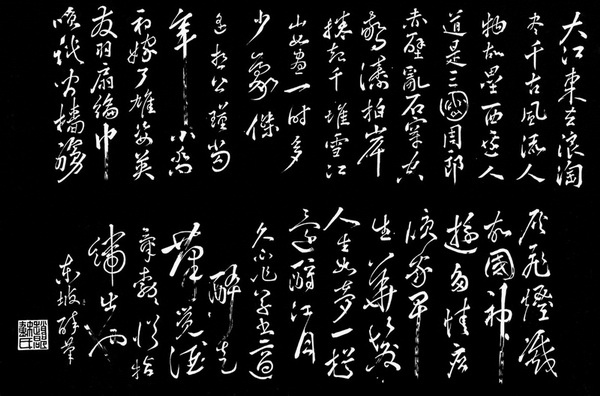 大江東去浪淘
盡千古風流人
物故壘西邊人
道是三國周郎
赤壁亂石穿空
驚濤拍岸
捲起千堆雪江
山如畫一時多
少豪傑
遙想公瑾當
年小喬
初嫁了雄姿英
發羽扇綸巾
談笑間檣櫓
灰飛煙滅
故國神
遊多情應
笑我早
生華髮
人生如夢一樽
還酹江月
久不作草書適
醉走
筆覺酒
氣勃勃從指
端出也
東坡醉筆